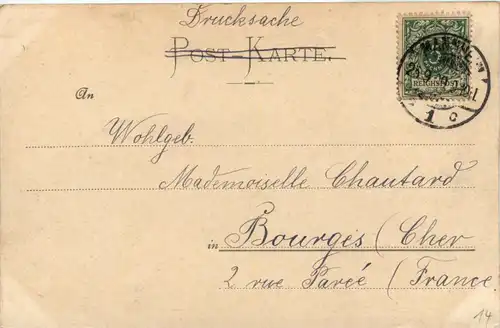 Drucksache
POST-KARTE.
REICHSPOST
1 c
An
Wohlgeb.
Mademoiselle Chautard
in Bourges (Cher
2 rue Parée (France
14